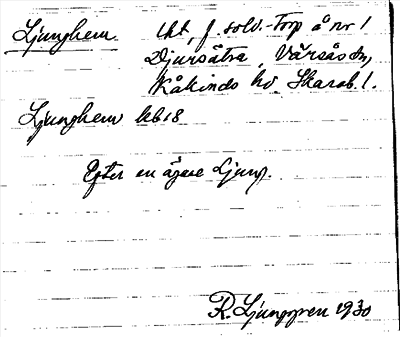 Ljunghem. lht, f. sold.-Torp å nr 1
Djursätra, Värsås sn,
Kåkinds hd Skarab. l.
Ljunghem hb 18
Efter en ägare Ljung.
R. Ljunggren 1930